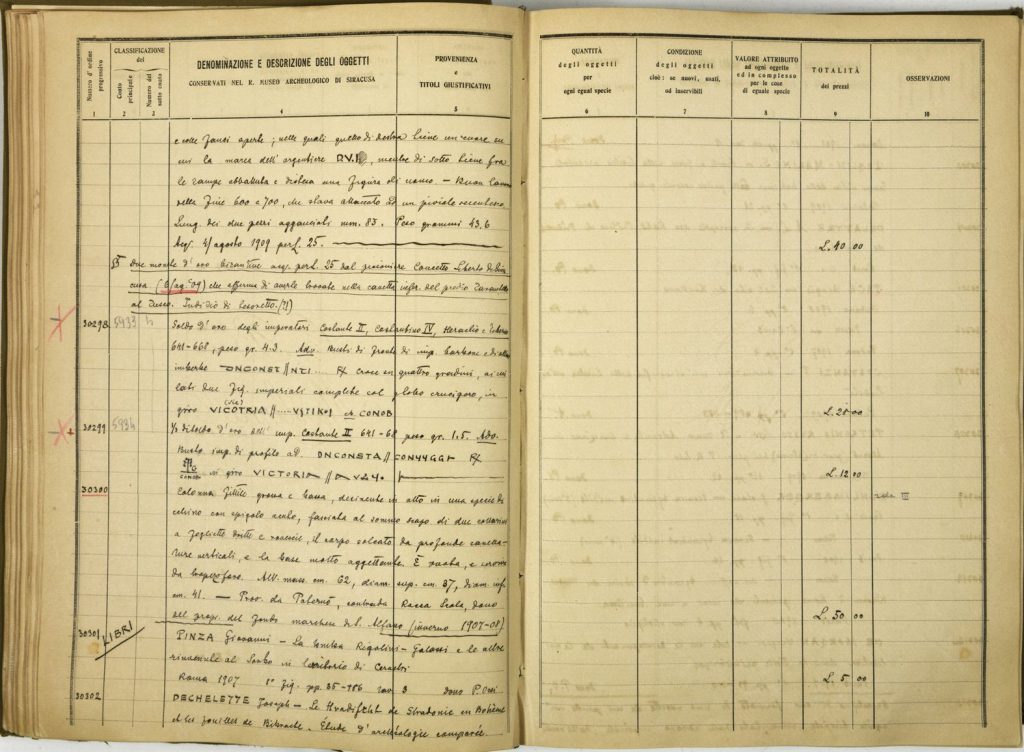 Numero d' ordine progressivo
CLASSIFICAZIONE del
Conto principale
Numero del sotto conto
DENOMINAZIONE E DESCRIZIONE DEGLI OGGETTI
CONSERVATI NEL R. MUSEO ARCHEOLOGICO DI SIRACUSA
PROVENIENZA
e
TITOLI GIUSTIFICATIVI
QUANTITÀ
degli oggetti
per
ogni egual specie
CONDIZIONE
degli oggetti
cioè: se nuovi, usati,
od inservibili
VALORE ATTRIBUITO
ad ogni oggetto
ed in complesso
per le cose
di eguale specie
TOTALITÀ
dei prezzi
OSSERVAZIONI
1 2 3 4 5 6 7 8 9 10
e colle fauci aperte; nelle quali quello di destra tiene un cuore su
cui la marca dell' argentiere P.V.I, mentre di sotto tiene fra
le zampe abbattuta e distesa una figura di uomo. - Buon lavoro
della fine 600 e 700, che stava attaccato ad un piviale
Lung. dei due pezzi agganciati mm. 83. Peso grammi 43.6
Acq. 4/agosto 1909 per L. 25.
L. 40 00
Due monete d' oro bizantine acq. per L. 25 dal Concetto Liberto di Sira
cusa, (6/ag.º 09) che afferma di averle trovate nella del predio
al Indizio di tesoretto. (?)
30298 5933
Soldo d' oro degli imperatori Costante II, Costantino IV, Heraclio e Tiberio
641-668, peso gr. 4.3. Adv. Busti di fronte di imp. barbone e di altro
imberbe DNCONST // NTI .... R/ croce su quattro gradini, ai cui
lati due fig. imperiali complete col globo crucigero, in
giro VICOTRIA // ..... es. CONOB
(sic)
L. 20 00
30299 5934
d' oro dell' imp. Costante II 641-68 peso gr. 1.5. Adv.
Busto imp. di profilo a D. DNCONSTA // R/
in giro VICTORIA //
L. 12 00
30300
Colonna fittile grossa e bassa, decinente in alto in una specie di
echino con spigolo acuto, fasciata al sommo scapo di due collarini
a foglietti dritti e rovesci, il corpo solcato da profonde cannella-
ture verticali, e la base molto aggettante. È vuota, e
da Alt. mass. cm. 62, diam. sup. cm. 37, diam. inf.
cm. 41. - Prov. da Paternò, contrada Rocca dono
del propr. del fondo marchese di S. Alfano (inverno 1907-08)
L. 50 00
30301 LIBRI
PINZA Giovanni - La tomba Regolini-Galassi e le altre
rinvenute al Sorbo in territorio di Cerveteri
Roma 1907 1° fig. pp. 35-186 tav 3 dono P. Orsi
L. 5 00
30302
DECHELETTE Joseph - Le Hradischt de Stradonic en Bohême
et les fouilles de Bibracte. Étude d'archéologie comparée.